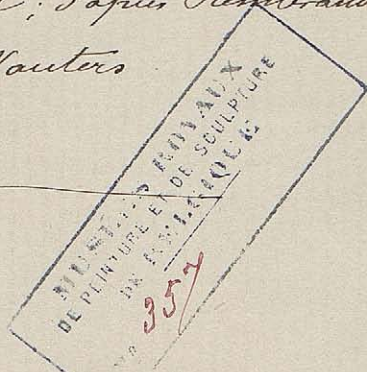 d'après Rembrandt
Wauters
MUSÉES ROYAUX
DE PEINTURE ET DE SCULPTURE
DE BELGIQUE
No 357